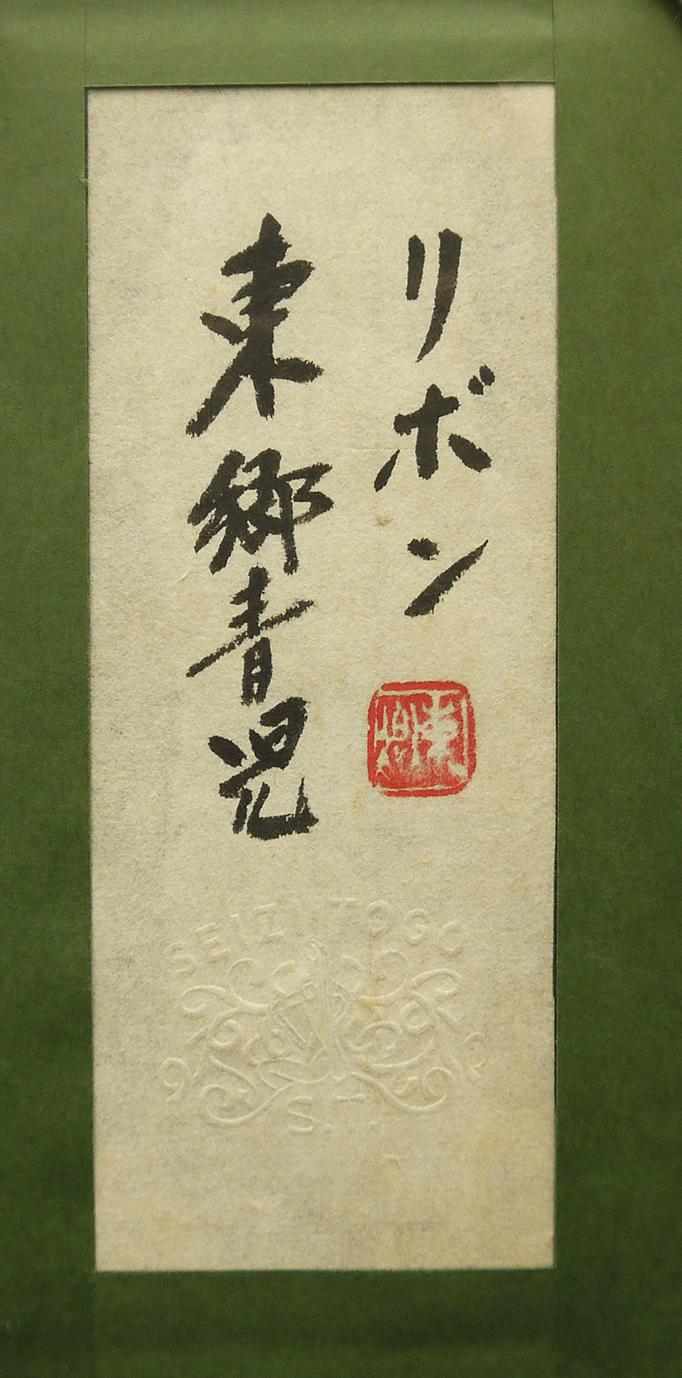 リボン
東郷青児
SEIZI TOGO